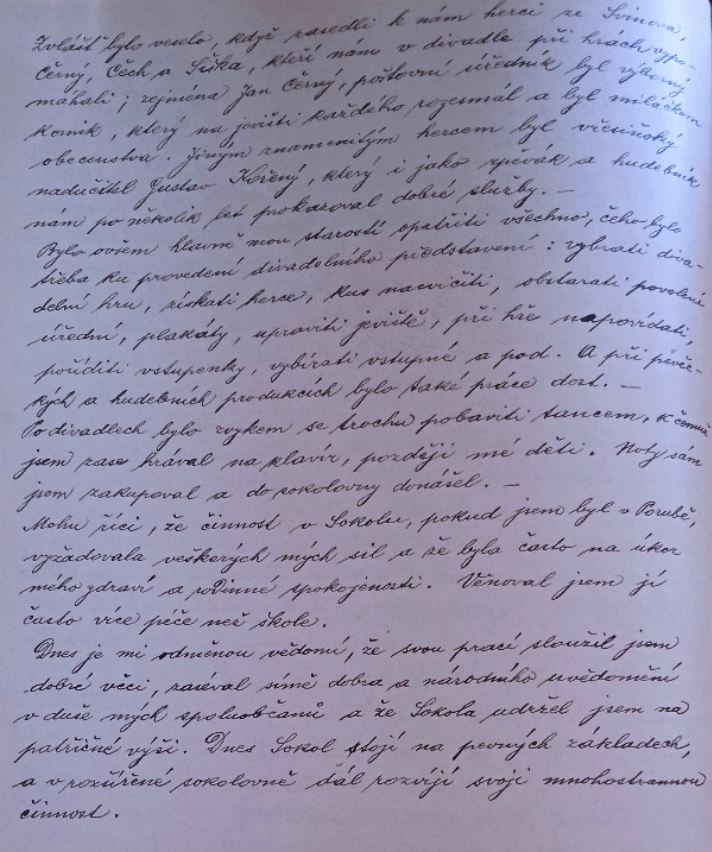 Zvlášť bylo veselo, když zasedli k nám herci ze Svinova,
Černý, Čech a Šiška, kteří nám v divadle při hrách vypo-
máhali; zejména Jan Černý, poštovní úředník byl výborný
komik, který na jevišti každého rozesmál a byl miláčkem
obecenstva. Jiným znamenitým hercem byl
nadučitel Gustav Kořený, který i jako zpěvák a hudebník
nám po několik let prokazoval dobré služby. —
Bylo ovšem hlavně mou starostí opatřiti všechno, čeho bylo
třeba ku provedení divadelního představení: vybrati diva-
delní hru, získati herce, kus nacvičiti, obstarati povolení
úřední, plakáty, upraviti jeviště, při hře napovídati,
poříditi vstupenky, vybírati vstupné a pod. A při pěvec-
kých a hudebních produkcích bylo také práce dost. —
Po divadlech bylo zvykem se trochu pobaviti tancem, k čemuž
jsem zase hrával na klavír, později mé děti. Noty sám
jsem zakupoval a do sokolovny donášel. —
Mohu říci, že činnost v Sokolu, pokud jsem byl v Porubě,
vyžadovala veškerých mých sil a že byla často na úkor
mého zdraví a rodinné spokojenosti. Věnoval jsem jí
často více péče než škole.
Dnes je mi odměnou vědomí, že svou prací sloužil jsem
dobré věci, zaséval símě dobra a národního uvědomění
v duše mých spoluobčanů a že Sokola udržel jsem na
patřičné výši. Dnes Sokol stojí na pevných základech,
a v rozšířené sokolovně dál rozvíjí svoji mnohostrannou
činnost.